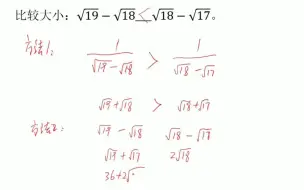 比较大小：√19−√18 < √18−√17。
方法1：
1 > 1
√19−√18 √18−√17
√19+√18 > √18+√17
方法2： √19 − √18 √18 −
√19+√17 2√18
36+2√